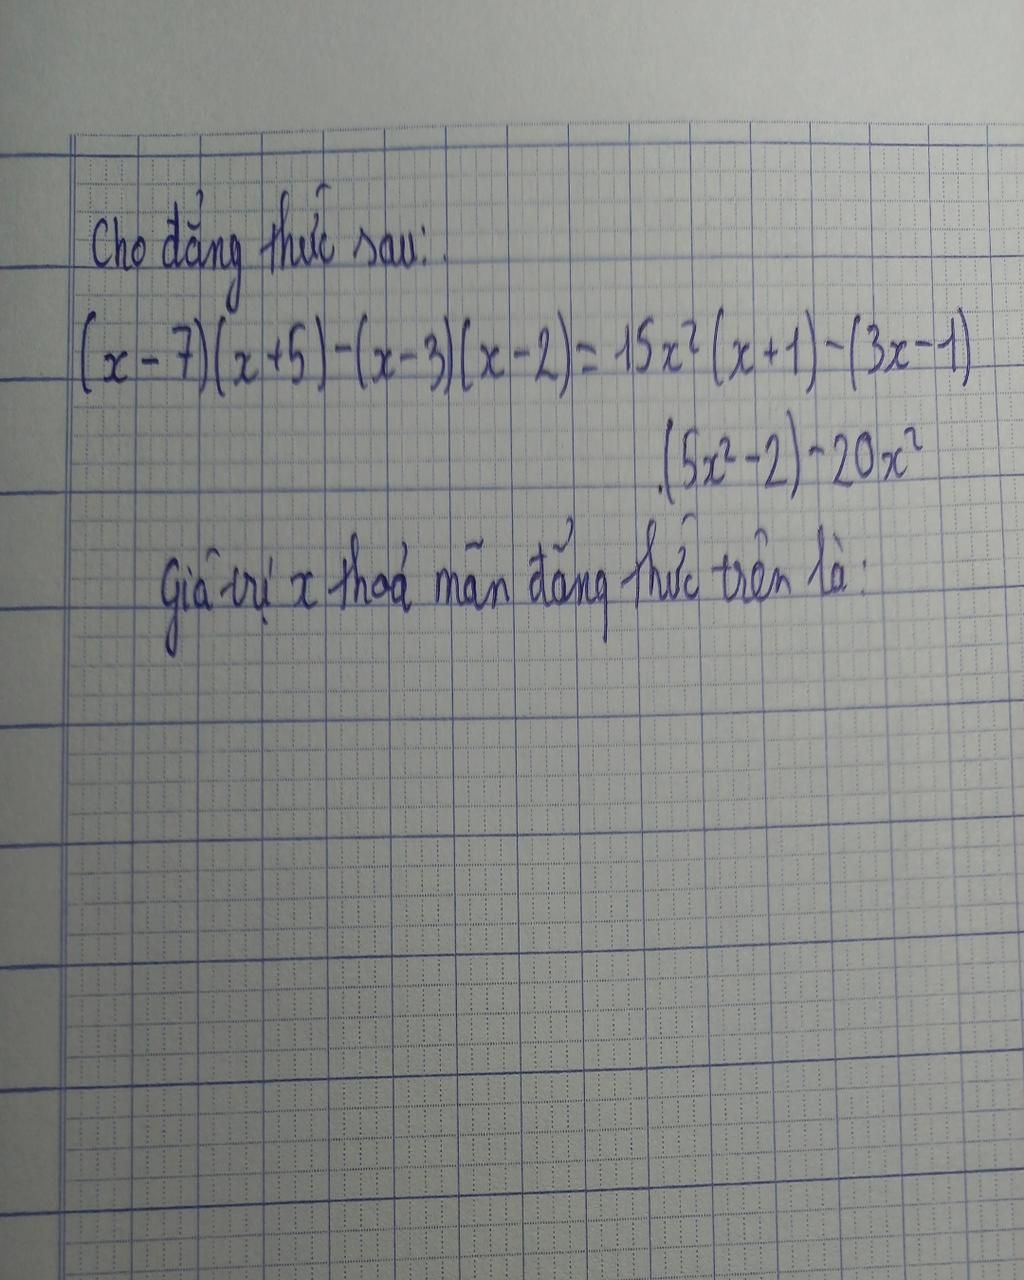 Cho đẳng thức sau:
(x-7)(x+5)-(x-3)(x-2)=15x²(x+1)-(3x-1)
.(5x²-2)-20x²
Giá trị x thoả mãn đẳng thức trên là: